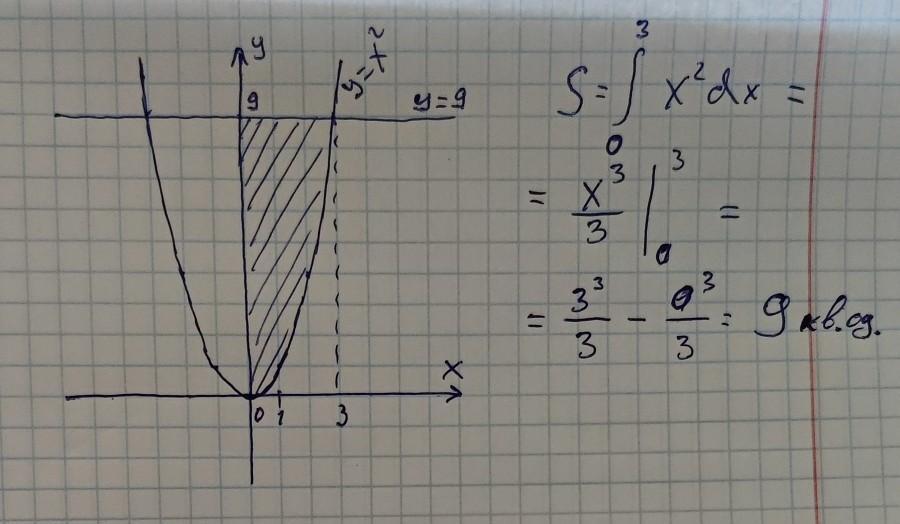 y
y=x²
9
y=9
x
0 1 3
S = ∫₀³ x² dx =
= x³/3 |₀³ =
= 3³/3 − 0³/3 = 9 кв.од.